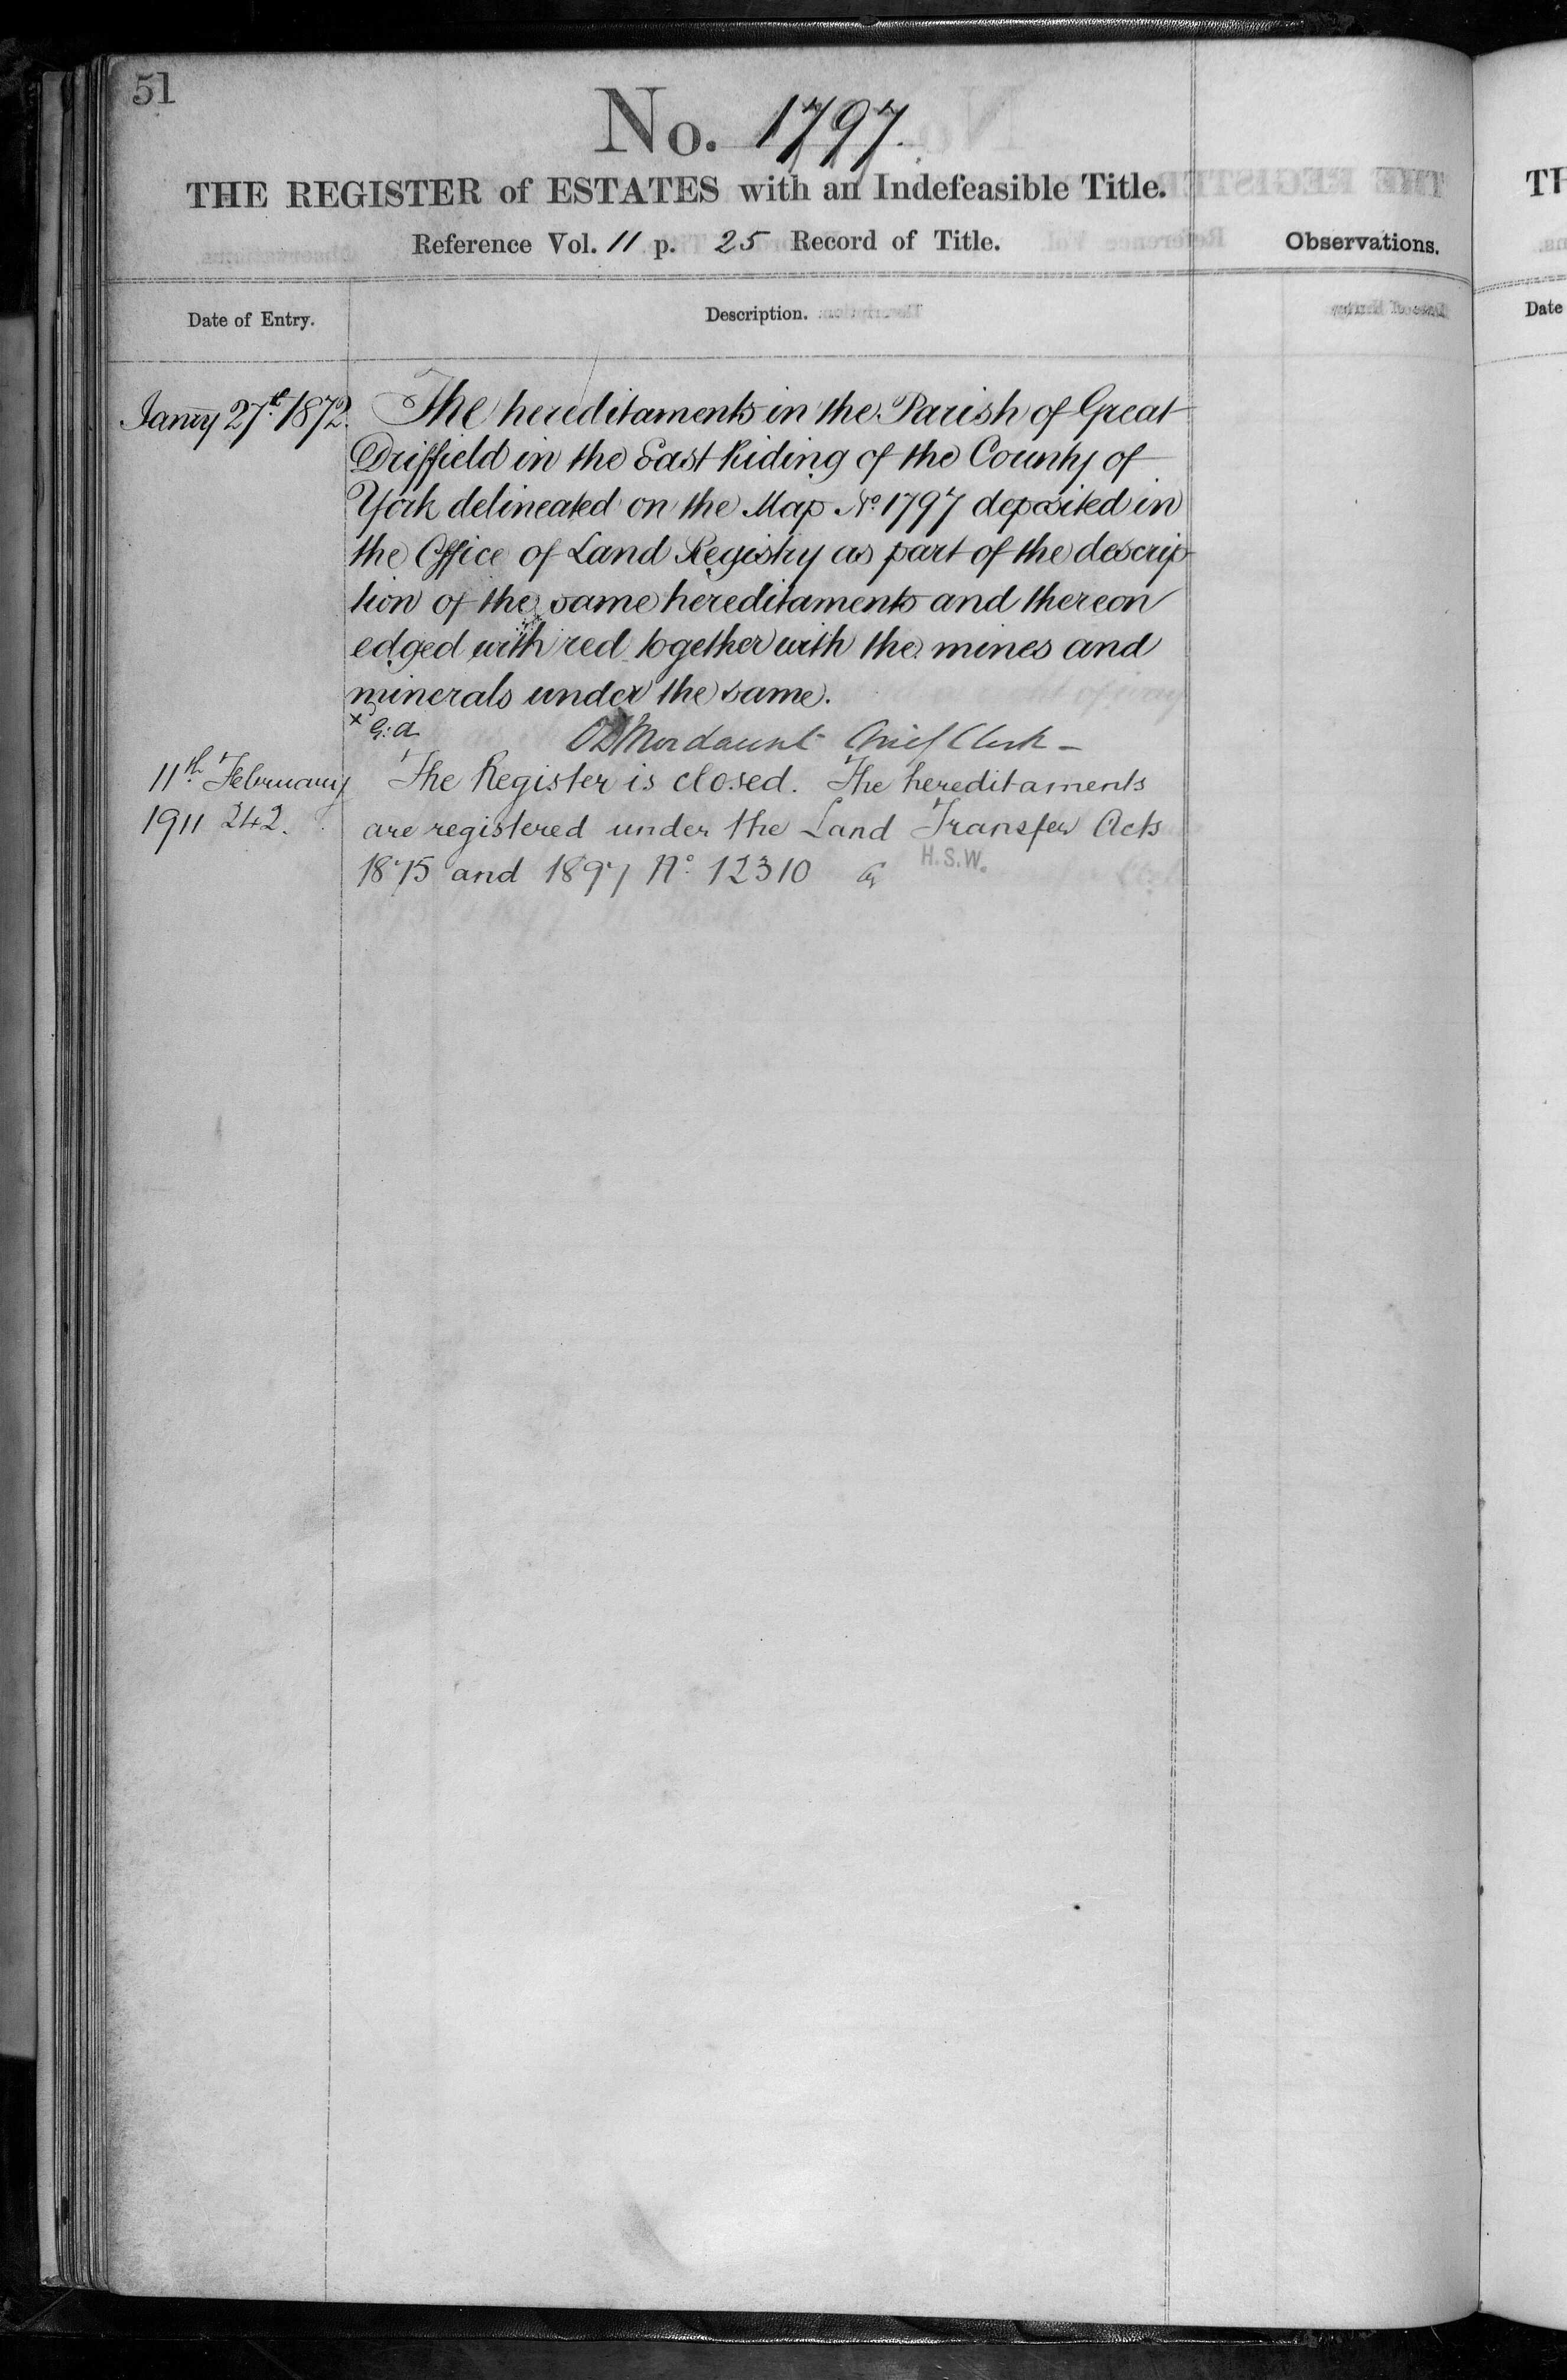 51
No. 1797.
THE REGISTER of ESTATES with an Indefeasible Title.
Reference Vol. 11 p. 25 Record of Title.
Observations.
Date of Entry.
Description.
Janry 27th 1872.
The hereditaments in the Parish of Great
Driffield in the East Riding of the County of
York delineated on the Map No. 1797 deposited in
the Office of Land Registry as part of the descrip-
tion of the same hereditaments and thereon
edged with red together with the mines and
minerals under the same.
x G.a.
Mordaunt Chief Clerk -
11th February
1911 242.
The Register is closed. The hereditaments
are registered under the Land Transfer Acts
1875 and 1897 No. 12310
H.S.W.
TH
Date